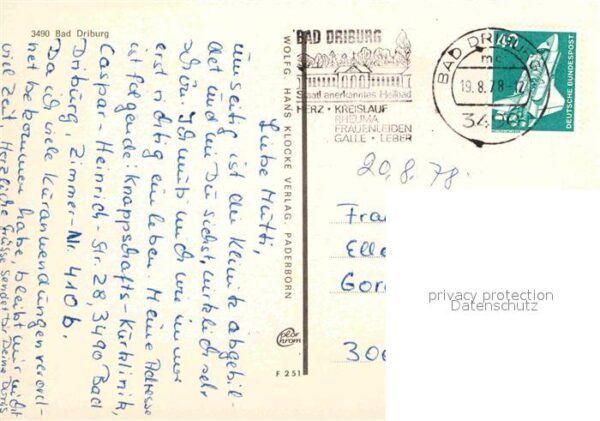 3490 Bad Driburg
Liebe Mutti,
umseitig ist die Klinik abgebil-
det und wie Du siehst, wirklich sehr
schön. Ich muß mich wie immer
erst richtig einleben. Meine Adresse
ist folgende: Knappschafts-Kurklinik,
Caspar-Heinrich-Str. 28, 3490 Bad
Driburg, Zimmer-Nr. 410 b.
Da ich viele Kuranwendungen verord-
net bekommen habe, bleibt mir nicht
viel Zeit. Herzliche Grüsse sendet Dir Deine
WOLFG. HANS KLOCKE VERLAG, PADERBORN
Color
Chrom
F 251
BAD DRIBURG
Staatl anerkanntes Heilbad
HERZ · KREISLAUF
RHEUMA
FRAUENLEIDEN
GALLE · LEBER
BAD DRIBURG
mc
19.8.78-12
3490
DEUTSCHE BUNDESPOST
20.8.78.
Fra
Elle
Gor
300
privacy protection
Datenschutz